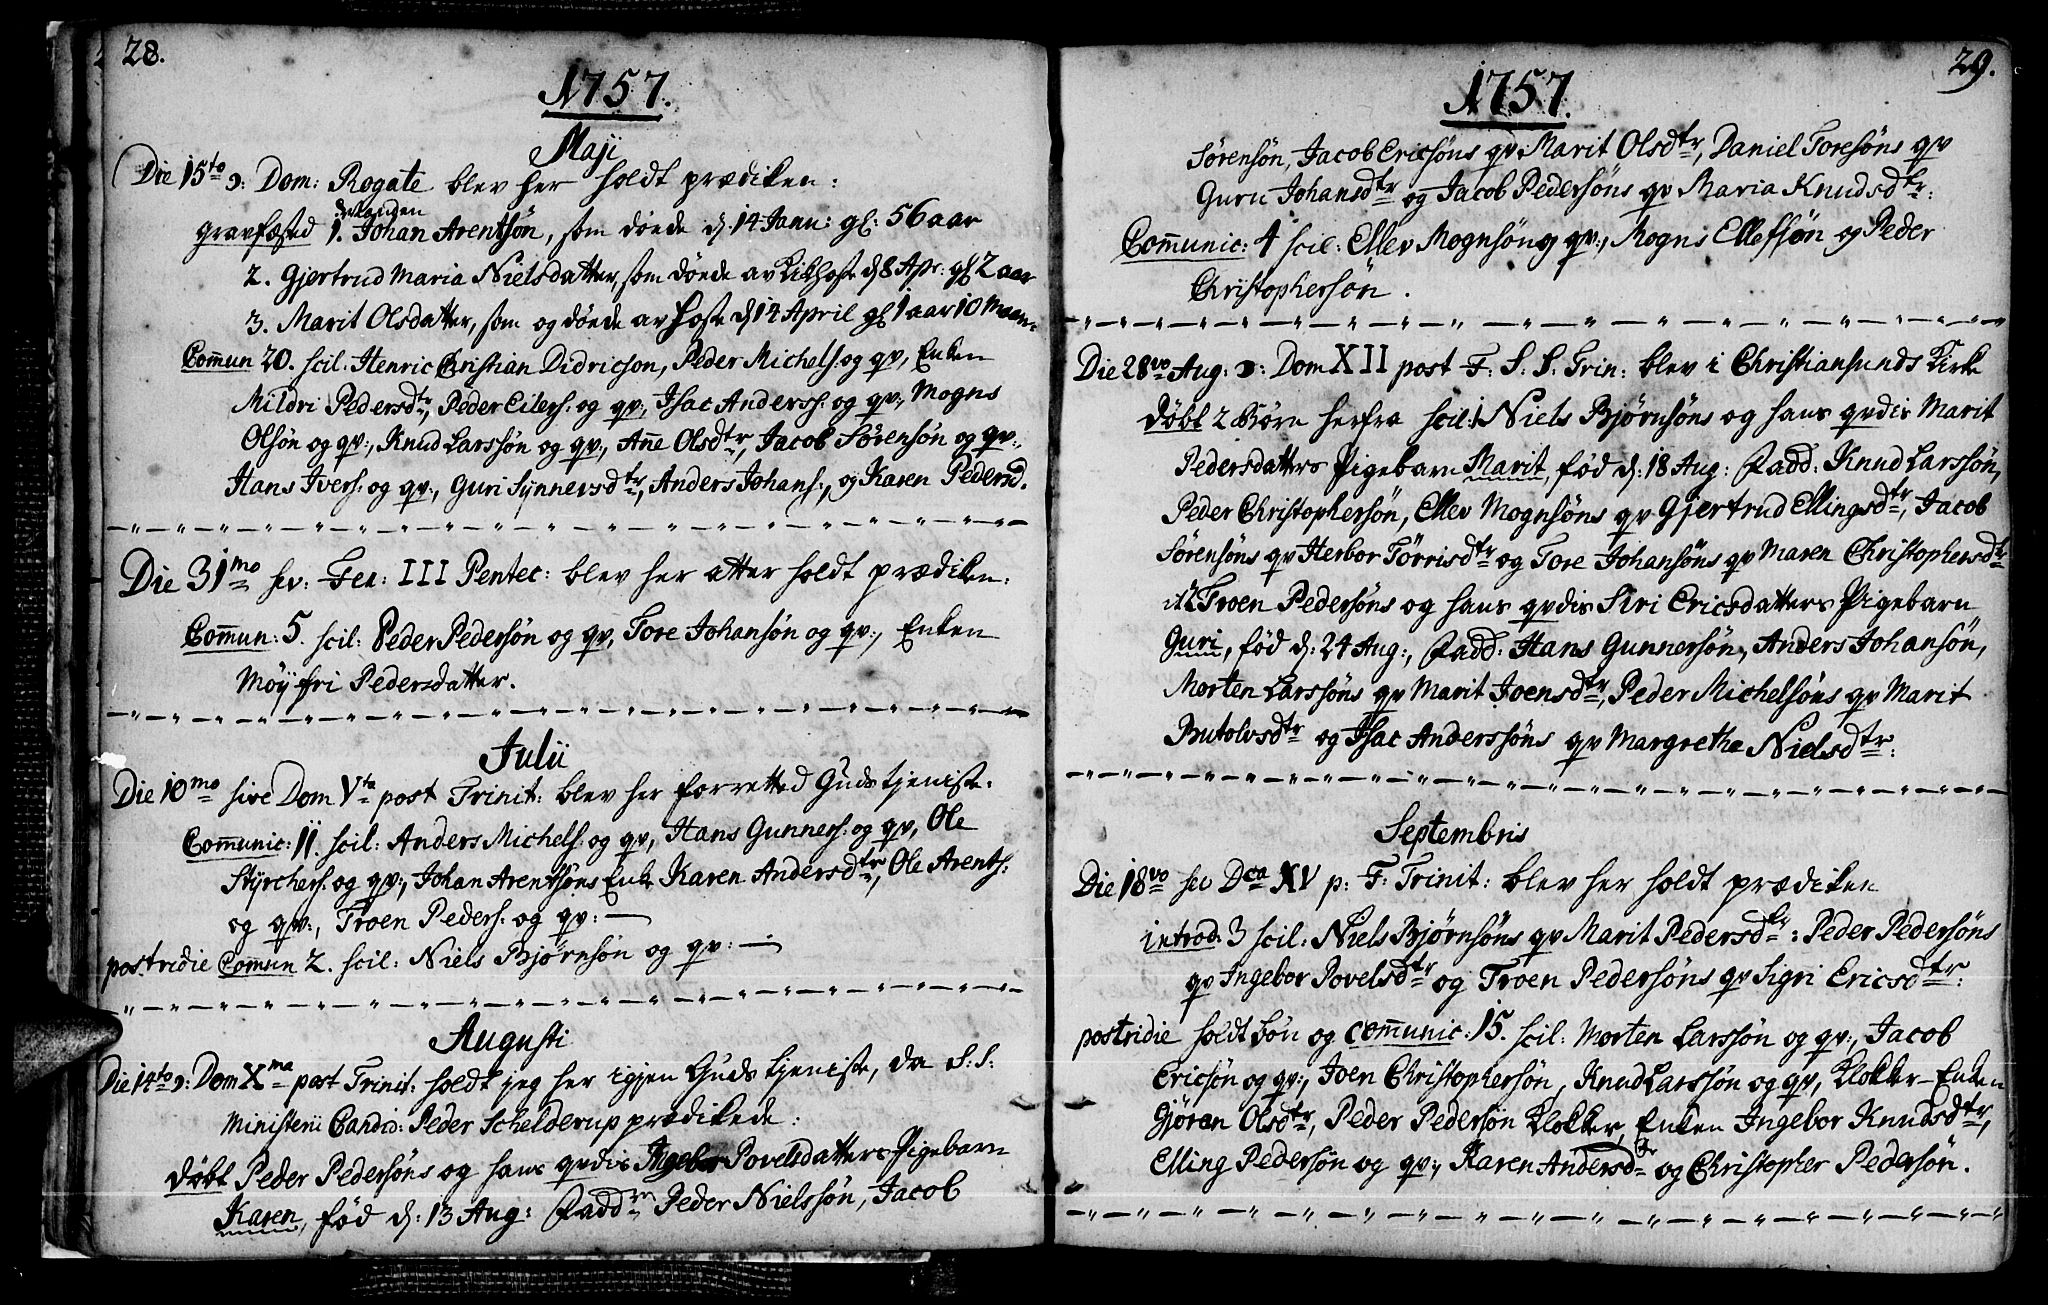 28.
1757.
Maji
Die 15to ɔ: Dom: Rogate blev her holdt prædiken:
gravfæsted 1. Johan Arentsøn, som døede d. 14 Janu: gl: 56 aar
2. Gjertrud Maria Nielsdatter, som døede av Kikhoste d 8 Apr: gl 2 aar
3. Marit Olsdatter, som og døede av Hoste d 14 April gl 1 aar 10 Maan:
Com̅un 20. scil: Henric Christian Didricson, Peder Michels: og qv, Enken
Mildri Pedersdtr, Peder Eilers: og qv:, Isac Anderss: og qv:, Mogns
Olsøn og qv:, Knud Larssøn og qv:, An̅e Olsdtr, Jacob Sørensøn og qv:,
Hans Ivers: og qv:, Guri Synnersdtr, Anders Johans:, og Karen Pedersd.
Die 31mo sev: Fer: III Pentec: blev her atter holdt prædiken:
Com̅un: 5. scil: Peder Pedersøn og qv, Tore Johansøn og qv:, Enken
Møyfri Pedersdatter.
Julii
Die 10mo sive Dom Vta post Trinit: blev her forretted Gudstjeniste:
Com̅unic: 11. scil: Anders Michels: og qv, Hans Gunners: og qv, Ole
Styrchers: og qv:, Johan Arentsøns Enke Karen Andersdtr, Ole Arents:
og qv:, Troen Peders: og qv: —
postridie Com̅un 2. scil: Niels Bjørnsøn og qv: —
Augusti
Die 14to ɔ: Dom Xma post Trinit: holdt jeg her igjen Gudstjeniste, da S: S:
Ministerii Candid: Peder Schelderup prædikede:
døbt Peder Pedersøns og hans qvdis Ingebor Povelsdatters Pigebarn
Karen, fød d: 13 Aug: Faddrn Peder Nielssøn, Jacob
29.
1757.
Sørensøn, Jacob Ericsøns qv Marit Olsdtr, Daniel Toresøns qv
Guru Johansdtr og Jacob Pedersøns qv Maria Knudsdtr:
Com̅unic: 4 scil: Ellev Mognsøn og qv:, Mogns Ellefsøn og Peder
Christophersøn.
Die 28vo Aug: ɔ: Dom XII post F: S. S. Trin: blev i Christiansunds Kirke
døbt 2 Børn herfra scil: 1 Niels Bjørnsøns og hans qvdis Marit
Pedersdatters Pigebarn Marit, fød d: 18 Aug: Fadd: Knud Larssøn,
Peder Christophersøn, Ellev Mognsøns qv Gjertrud Ellingsdtr, Jacob
Sørensøns qv Herbor Tørrisdtr og Tore Johansøns qv Maren Christophersdtr
2 Troen Pedersøns og hans qvdis Siri Ericsdatters Pigebarn
Guri, fød d: 24 Aug:, Fadd: Hans Gunnersøn, Anders Johansøn,
Morten Larssøns qv Marit Joensdtr, Peder Michelsøns qv Marit
Butolvsdtr og Isac Anderssøns qv Margrethe Nielsdtr:
Septembris
Die 18vo sev Dca XV p: F: Trinit: blev her holdt prædiken
introd: 3 scil: Niels Bjørnsøns qv Marit Pedersdtr: Peder Pedersøns
qv Ingebor Povelsdtr og Troen Pedersøns qv Sigri Ericsdtr:
postridie holdt Bøn og com̅unic: 15. scil: Morten Larssøn og qv:, Jacob
Ericsøn og qv:, Joen Christophersøn, Knud Larssøn og qv, Klokker-Enken
Gjøran Olsdtr, Peder Pedersøn Klokker, Enken Ingebor Knudsdtr,
Elling Pedersøn og qv:, Karen Andersdtr og Christopher Pedersøn.